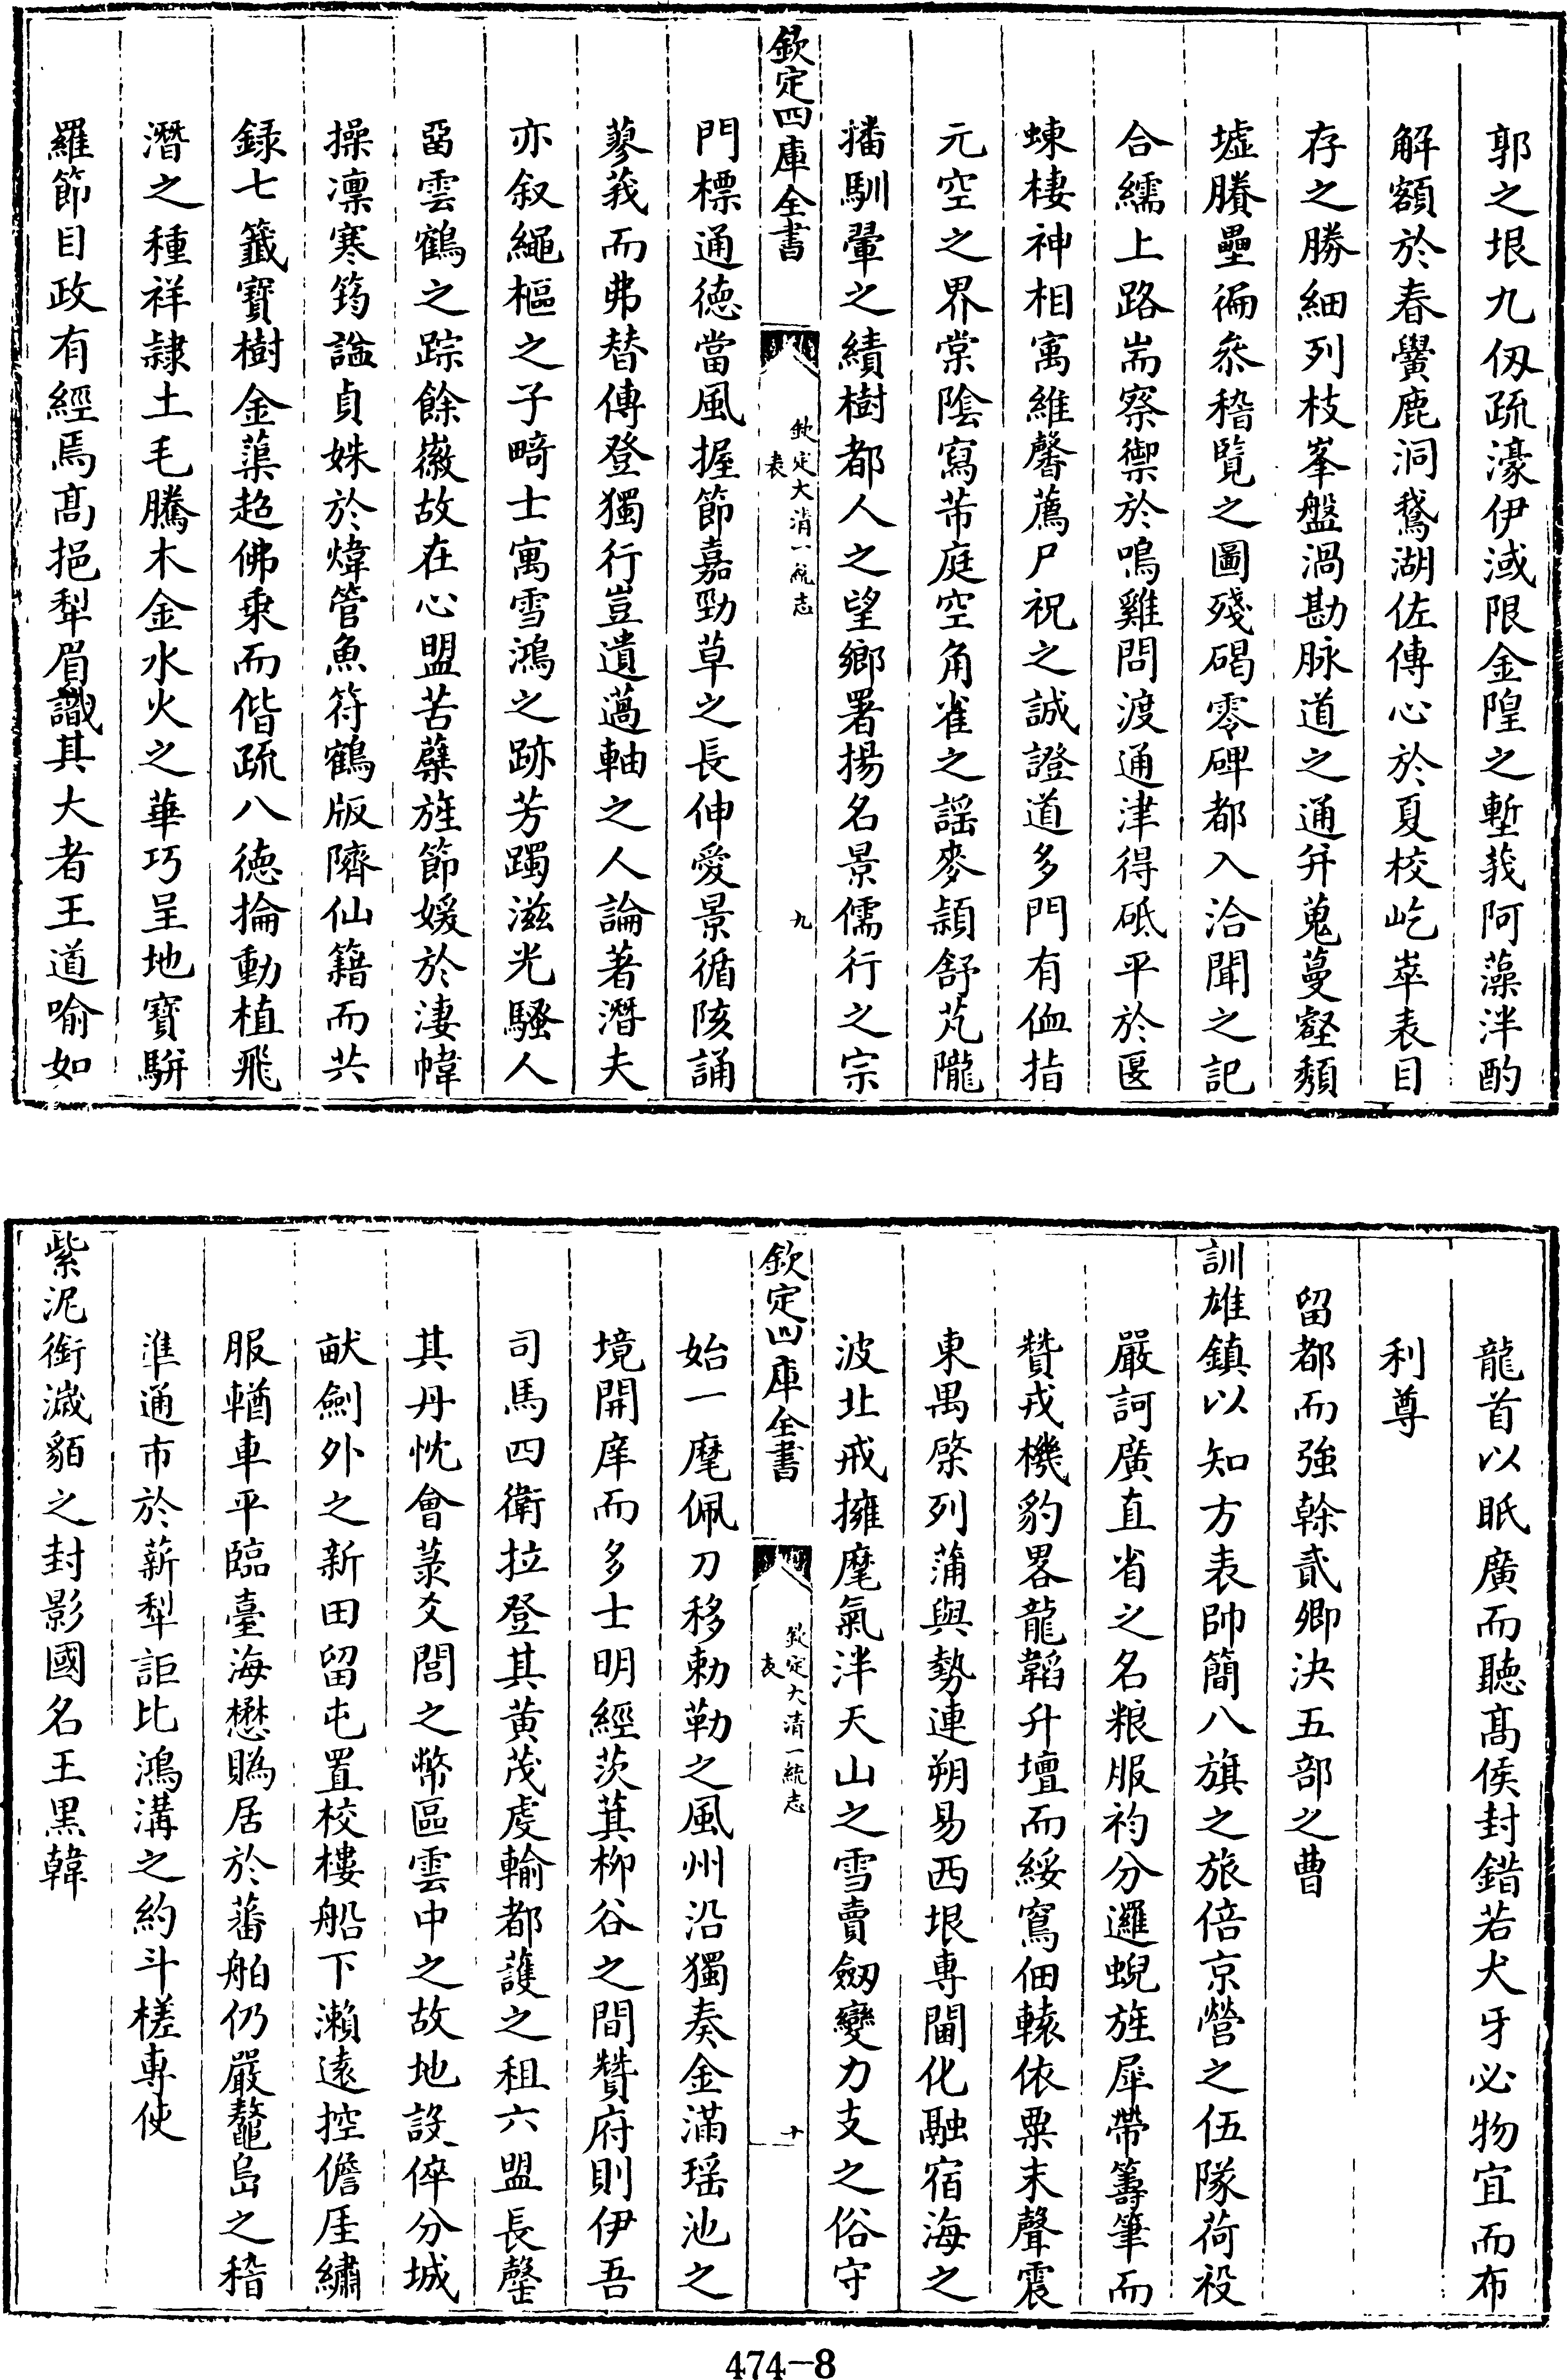 郭之垠九仭疏濠伊淢限金隍之塹莪阿藻泮酌
解額於春黌鹿洞鵞湖佐傳心於夏校屹崒表目
存之勝細列枝峯盤渦勘脉道之通弁蒐蔓壑頽
墟賸壘徧叅稽覽之圖殘碣零碑都入洽聞之記
合繻上路耑察禦於鳴雞問渡通津得砥平於匽
蝀棲神相寓維馨薦尸祝之誠證道多門有侐指
元空之界棠隂寫芾庭空角雀之謡麥穎舒芃隴
播馴翬之績樹都人之望鄉署揚名景儒行之宗
欽定四庫全書
欽定大清一統志
表
九
門標通德當風握節嘉勁草之長伸愛景循陔誦
蓼莪而弗替傳登獨行豈遺薖軸之人論著潛夫
亦叙繩樞之子畸士寓雪鴻之跡芳躅滋光騷人
畱雲鶴之踪餘徽故在心盟苦蘗旌節媛於淒幃
操凜寒筠謚貞姝於煒管魚符鶴版隮仙籍而共
録七籖寶樹金蕖超佛乘而偕疏八德掄動植飛
潛之種祥隷土毛騰木金水火之華巧呈地寳駢
羅節目政有經焉髙挹犁眉識其大者王道喻如
龍首以眂廣而聽髙侯封錯若犬牙必物宜而布
利尊
留都而強榦貳卿決五部之曹
訓雄鎮以知方表帥簡八旗之旅倍京營之伍隊荷祋
嚴訶廣直省之名粮服袀分邏蜺旌犀帶籌筆而
贊戎機豹畧龍韜升壇而綏窵佃轅依粟末聲震
東禺棨列蒲與勢連朔易西垠專閫化融宿海之
波北戒擁麾氣泮天山之雪賣劒變力支之俗守
欽定四庫全書
欽定大清一統志
表
十
始一麾佩刀移勅勒之風州沿獨奏金滿瑶池之
境開庠而多士明經茨萁柳谷之間贊府則伊吾
司馬四衛拉登其黄茂虔輸都䕶之租六盟長罄
其丹忱會菉爻閭之幣區雲中之故地設倅分城
畎劍外之新田留屯置校樓船下瀨遠控儋厓繡
服輶車平臨臺海懋賜居於蕃舶仍嚴鼇島之稽
準通市於薪犁詎比鴻溝之約斗槎專使
紫泥銜濊貊之封影國名王黒韓
474-8